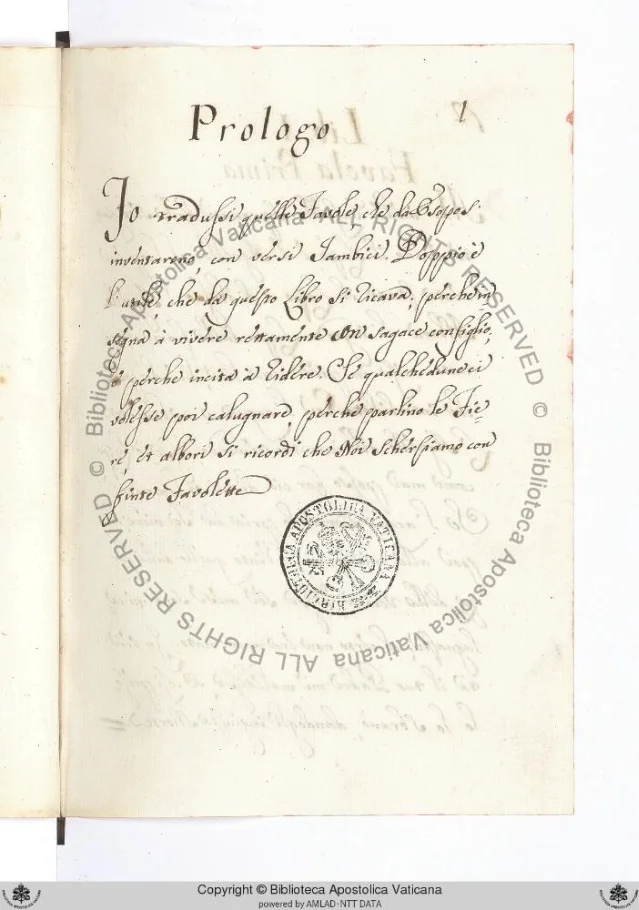 1
Prologo
Io tradussi queste Favole, che da Esopo s'
inventareno, con versi Iambici. Doppio è
l'utile, che da questo Libro si ricava, perche in
segna à vivere rettamente con sagace consiglio,
e perche incita à ridere. Se qualcheduno ci
volesse poi calugnare, perche parlino le Fie=
re, et albori si ricordi che Noi scherziamo con
finte Favolette
BIBLIOTECA APOSTOLICA VATICANA
© Biblioteca Apostolica Vaticana ALL RIGHTS RESERVED © Biblioteca Apostolica Vaticana ALL RIGHTS RESERVED
Copyright © Biblioteca Apostolica Vaticana
powered by AMLAD-NTT DATA